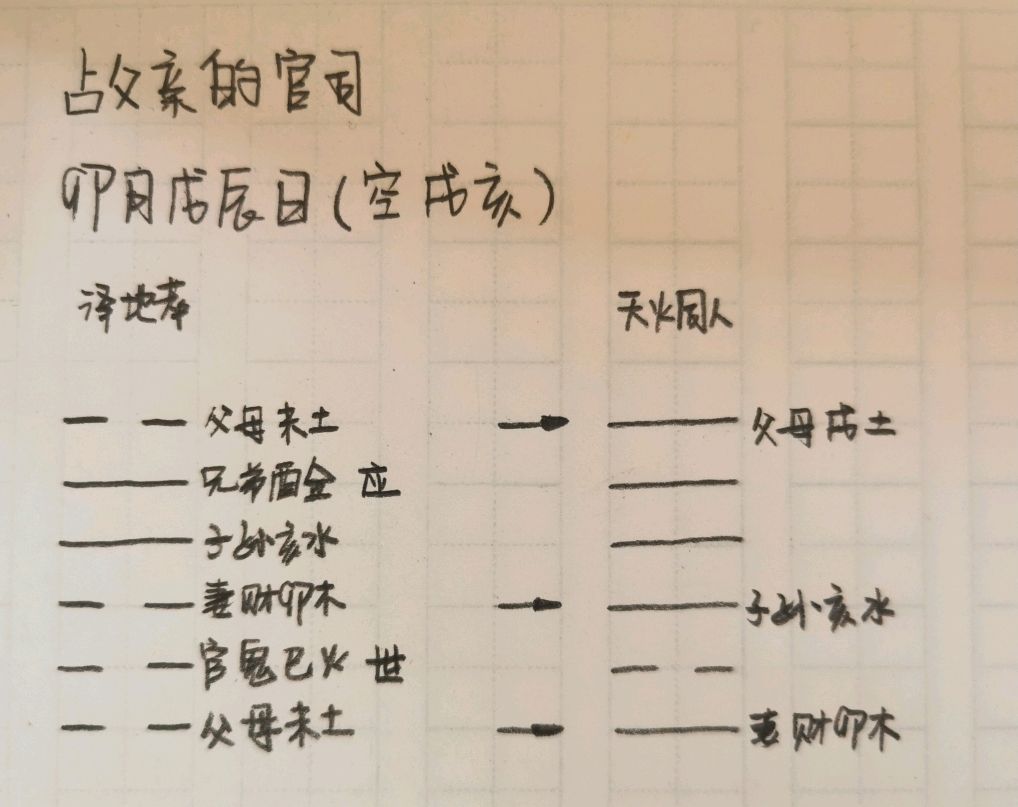 占父亲的官司
卯月戊辰日(空戌亥)
泽地萃 天火同人
父母未土 父母戌土
兄弟酉金 应
子孙亥水
妻财卯木 子孙亥水
官鬼巳火 世
父母未土 妻财卯木